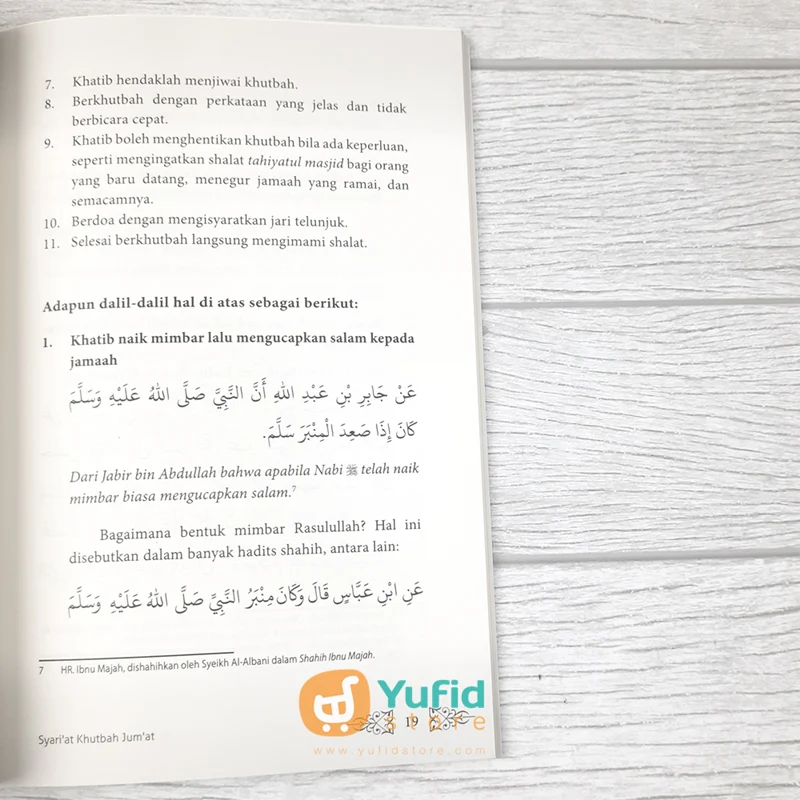 7. Khatib hendaklah menjiwai khutbah.
8. Berkhutbah dengan perkataan yang jelas dan tidak
berbicara cepat.
9. Khatib boleh menghentikan khutbah bila ada keperluan,
seperti mengingatkan shalat tahiyatul masjid bagi orang
yang baru datang, menegur jamaah yang ramai, dan
semacamnya.
10. Berdoa dengan mengisyaratkan jari telunjuk.
11. Selesai berkhutbah langsung mengimami shalat.
Adapun dalil-dalil hal di atas sebagai berikut:
1. Khatib naik mimbar lalu mengucapkan salam kepada
jamaah
عَنْ جَابِرِ بْنِ عَبْدِ اللهِ أَنَّ النَّبِيَّ صَلَّى اللهُ عَلَيْهِ وَسَلَّمَ
كَانَ إِذَا صَعِدَ الْمِنْبَرَ سَلَّمَ.
Dari Jabir bin Abdullah bahwa apabila Nabi ﷺ telah naik
mimbar biasa mengucapkan salam.⁷
Bagaimana bentuk mimbar Rasulullah? Hal ini
disebutkan dalam banyak hadits shahih, antara lain:
عَنِ ابْنِ عَبَّاسٍ قَالَ وَكَانَ مِنْبَرُ النَّبِيِّ صَلَّى اللهُ عَلَيْهِ وَسَلَّمَ
7 HR. Ibnu Majah, dishahihkan oleh Syeikh Al-Albani dalam Shahih Ibnu Majah.
Yufid
store
19
www.yufidstore.com
Syari'at Khutbah Jum'at